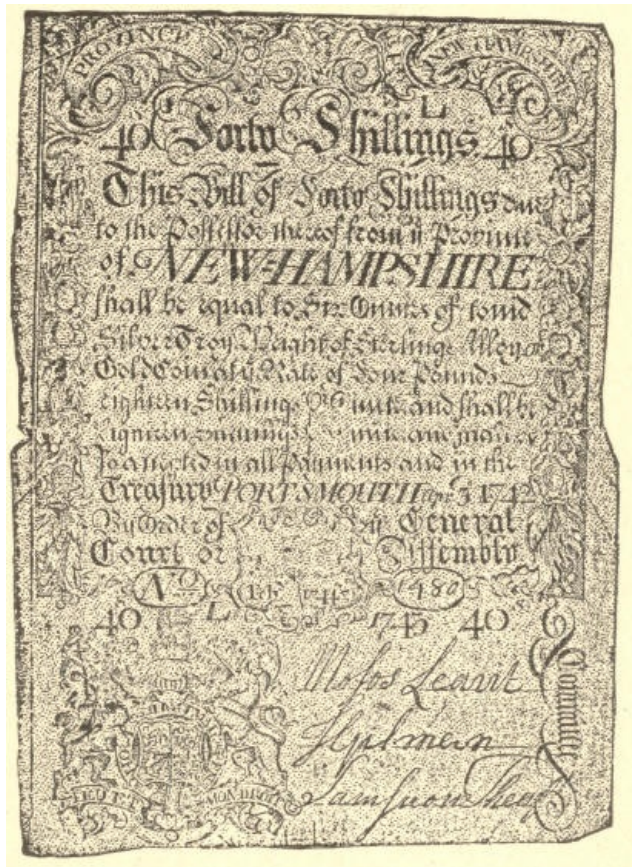 PROVINCE NEW HAMPSHIRE
L
40 Forty Shillings 40
This Bill of Forty Shillings due
to the Possessor thereof from yͤ Province
of NEW=HAMPSHIRE
shall be equal to Six Ounces of coind
Silver Troy Weight of Sterling Alloy or
Gold Coin at yͤ Rate of Four Pounds
eighteen Shillings unce and shall be
eighteen Shillings unce and
in all Payments and in the
Treasury PORTSMOUTH Apr 3 1742
By Order of yͤ General
Court or Assembly
No 1480
40 L 1743 40
Moses Leavit
Gilman
Sam
Committee
DIEU ET MON DROIT